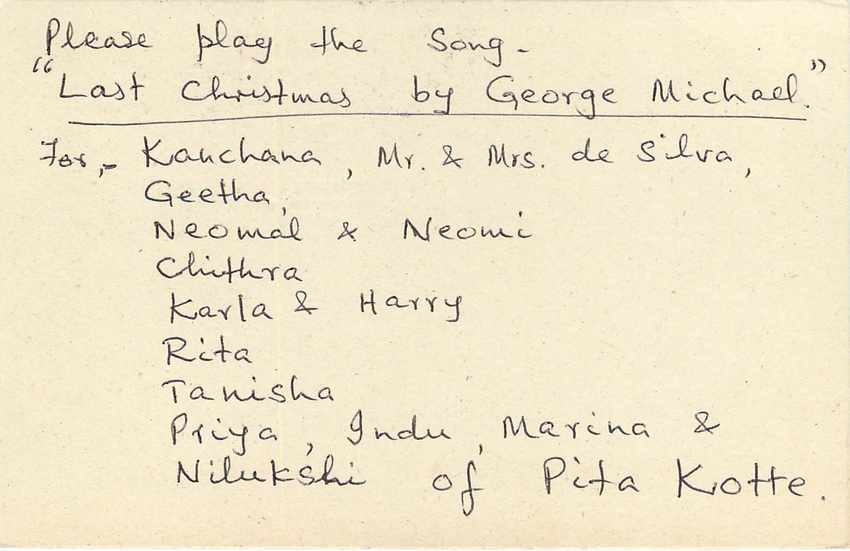 Please play the song-
"Last Christmas by George Michael."
For,- Kanchana, Mr. & Mrs. de Silva,
Geetha,
Neomal & Neomi
Chithra
Karla & Harry
Rita
Tanisha
Priya, Indu, Marina &
Nilukshi of Pita Kotte.